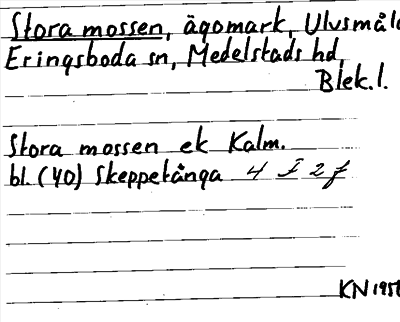 Stora mossen, ägomark, Ulvsmåla
Eringsboda sn, Medelstads hd,
Blek.l.
Stora mossen ek Kalm.
bl. (40) Skeppetånga 4 I 2 f
KN 1958